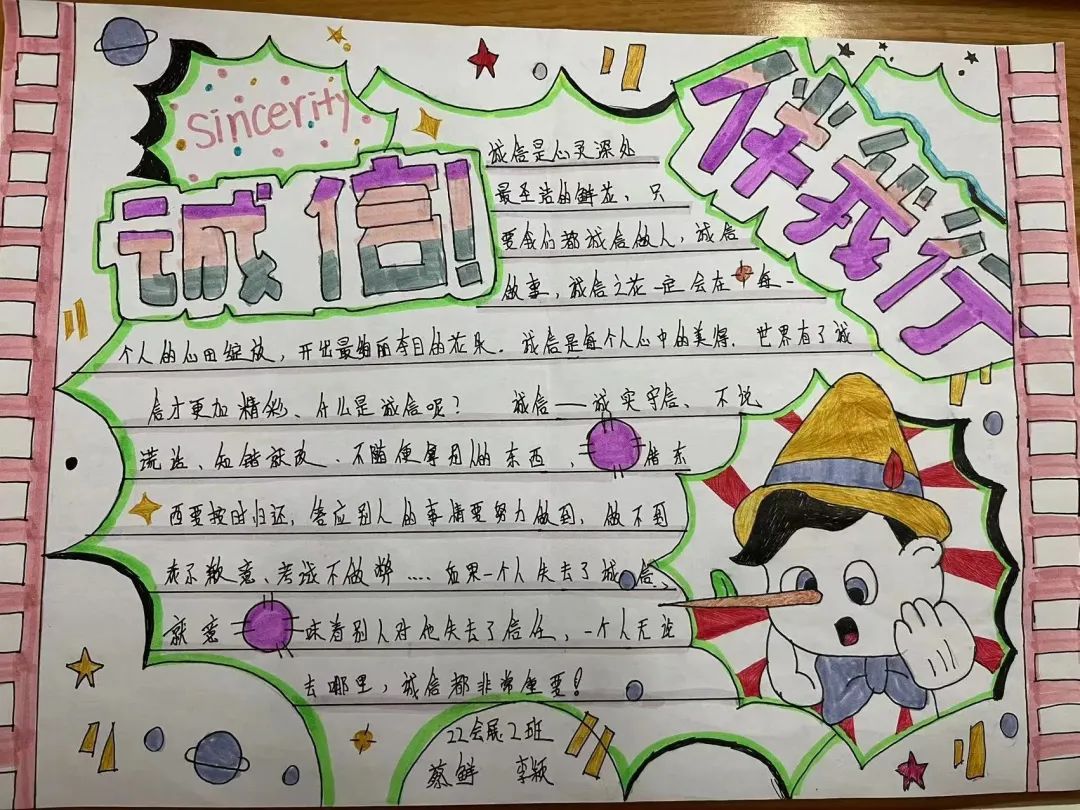 sincerity
诚信!
伴我行
诚信是心灵深处
最圣洁的鲜花，只
要我们都诚信做人，诚信
做事，诚信之花一定会在每一
个人的心田绽放，开出最绚丽夺目的花朵．诚信是每个人心中的美得．世界有了诚
信才更加精彩、什么是诚信呢？ 诚信——诚实守信、不说
谎话、知错就改、不随便拿别人的东西、借东
西要按时归还，答应别人的事情要努力做到，做不到
表示歉意、考试不做弊....如果一个人失去了诚信、
就意味着别人对他失去了信任，一个人无论
去哪里，诚信都非常重要！
22会展2班
蔡鲜 李颖